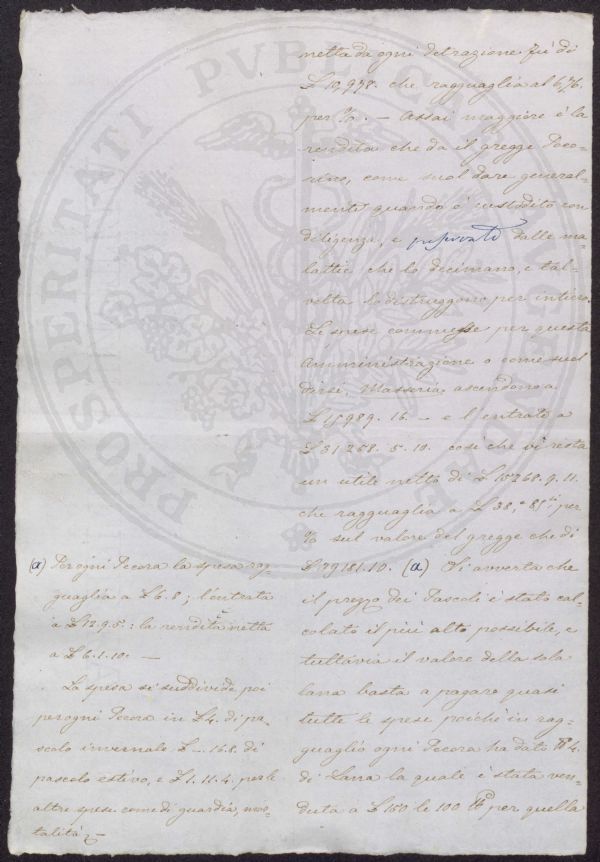 netta da ogni detrazione fu di
£ 12,978. che ragguaglia al 6,76.
per %. — Assai maggiore è la
rendita che da il gregge Peco-
rino, come suol dare general-
mente quando è custodito con
diligenza, e preservato dalle ma-
lattie che lo decimano, e tal-
volta lo distruggono per intiero.
Le spese commesse per questa
Amministrazione o come suol
dirsi, Masseria ascendono a
£ 15989. 16. — e l'entrata a
£ 31258. 5. 10. così che vi resta
un utile netto di £ 15268. 9. 11.
che ragguaglia a £ 38, per
% sul valore del gregge che di
£ 39181. 10. (a) Si avverta che
il prezzo dei Pascoli è stato cal-
colato il più alto possibile, e
tuttavia il valore della sola
lana basta a pagare quasi
tutte le spese poichè in rag-
guaglio ogni Pecora ha dato 4.
di Lana la quale è stata ven-
duta a £ 150 le 100 per quella
(a) Per ogni Pecora la spesa rag-
guaglia a £ 6. 8; l'entrata
a £ 12. 9. 5: la rendita netta
a £ 6. 1. 10. —
La spesa si suddivide poi
per ogni Pecora in £ 4. di pa-
scolo invernale £ —. 16. 8. di
pascolo estivo, e £ 1. 11. 4. per le
altre spese come di guardia, mor-
talità, —
PROSPERITATI PVBLICAE AVGENDAE